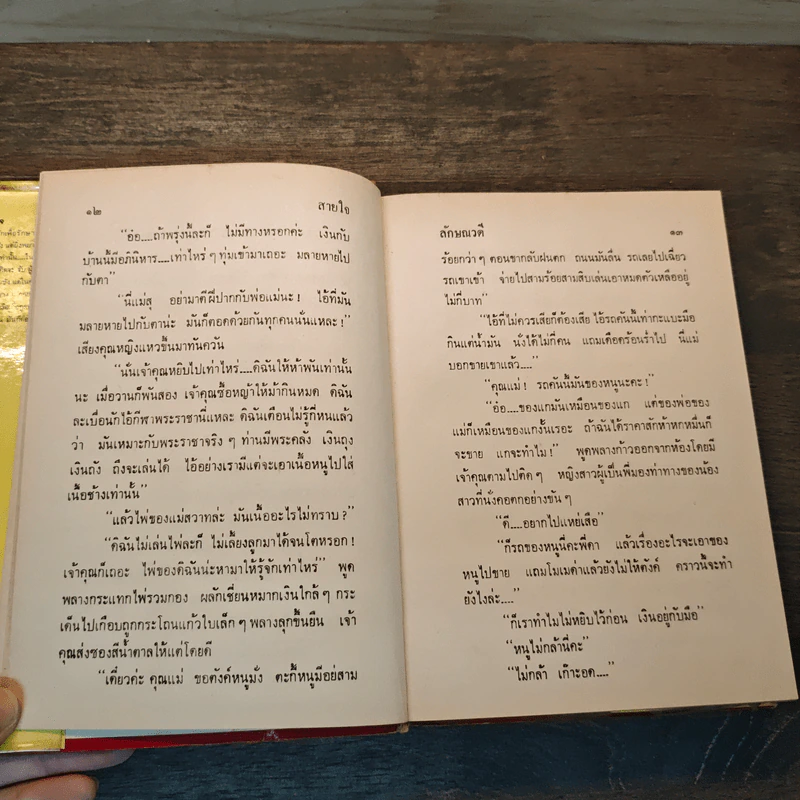 ๑๒ สายใจ
“อ๋อ....ถ้าพรุ่งนี้ละก็ ไม่มีทางหรอกค่ะ เงินกับ
บ้านนี้มีอภินิหาร....เท่าไหร่ๆ ทุ่มเข้ามาเถอะ มลายหายไป
กับตา”
“นี่แม่สุ อย่ามาตีฝีปากกับพ่อแม่นะ! ไอ้ที่มัน
มลายหายไปกับตาน่ะ มันก็ตอดด้วยกันทุกคนนั่นแหละ!”
เสียงคุณหญิงแหวขึ้นมาทันควัน
“นั่นเจ้าคุณหยิบไปเท่าไหร่....ดิฉันให้ห้าพันเท่านั้น
นะ เมื่อวานก็พันสอง เจ้าคุณซื้อหญ้าให้ม้ากินหมด ดิฉัน
ละเบื่อนักไอ้กีฬาพระราชานี่แหละ ดิฉันเตือนไม่รู้กี่หนแล้ว
ว่า มันเหมาะกับพระราชาจริงๆ ท่านมีพระคลัง เงินถุง
เงินถัง ถึงจะเล่นได้ ไอ้อย่างเรามีแต่จะเอาเนื้อหนูไปใส่
เนื้อช้างเท่านั้น”
“แล้วไพ่ของแม่สวาทล่ะ มันเนื้ออะไรไม่ทราบ?”
“ดิฉันไม่เล่นไพ่ละก็ ไม่เลี้ยงลูกมาได้จนโตหรอก!
เจ้าคุณก็เถอะ ไพ่ของดิฉันน่ะหามาให้รู้จักเท่าไหร่” พูด
พลางกระแทกไพ่รวมกอง ผลักเชี่ยนหมากเงินใกล้ๆ กระ
เด็นไปเกือบถูกกระโถนแก้วใบเล็กๆ พลางลุกขึ้นยืน เจ้า
คุณส่งซองสีน้ำตาลให้แต่โดยดี
“เดี๋ยวค่ะ คุณแม่ ขอตังค์หนูมั่ง ตะกี้หนูมีอยู่สาม
ลักษณวตี ๑๓
ร้อยกว่าๆ ตอนขากลับฝนตก ถนนมันลื่น รถเลยไปเฉี่ยว
รถเขาเข้า จ่ายไปสามร้อยสามสิบเล่นเอาหมดตัวเหลืออยู่
ไม่กี่บาท”
“ไอ้ที่ไม่ควรเสียก็ต้องเสีย ไอ้รถคันนี้เท่ากะแบะมือ
กินแต่น้ำมัน นั่งได้ไม่กี่คน แถมเดือดร้อนร่ำไป นี่แม่
บอกขายเขาแล้ว....”
“คุณแม่! รถคันนี้มันของหนูนะคะ!”
“อ๋อ....ของแกมันเหมือนของแก แต่ของพ่อของ
แม่ก็เหมือนของแกงั้นเรอะ ถ้าฉันได้ราคาสักห้าหกหมื่นก็
จะขาย แกจะทำไม!” พูดพลางก้าวออกจากห้องโดยมี
เจ้าคุณตามไปติดๆ หญิงสาวผู้เป็นพี่มองท่าทางของน้อง
สาวที่นั่งคอตกอย่างขันๆ
“ดี....อยากไปแหย่เสือ”
“ก็รถของหนูนี่คะพี่ดา แล้วเรื่องอะไรจะเอาของ
หนูไปขาย แถมโมเมด่าแล้วยังไม่ให้ตังค์ คราวนี้จะทำ
ยังไงล่ะ....”
“ก็เราทำไมไม่หยิบไว้ก่อน เงินอยู่กับมือ”
“หนูไม่กล้านี่คะ”
“ไม่กล้า เก๊าะอด....”